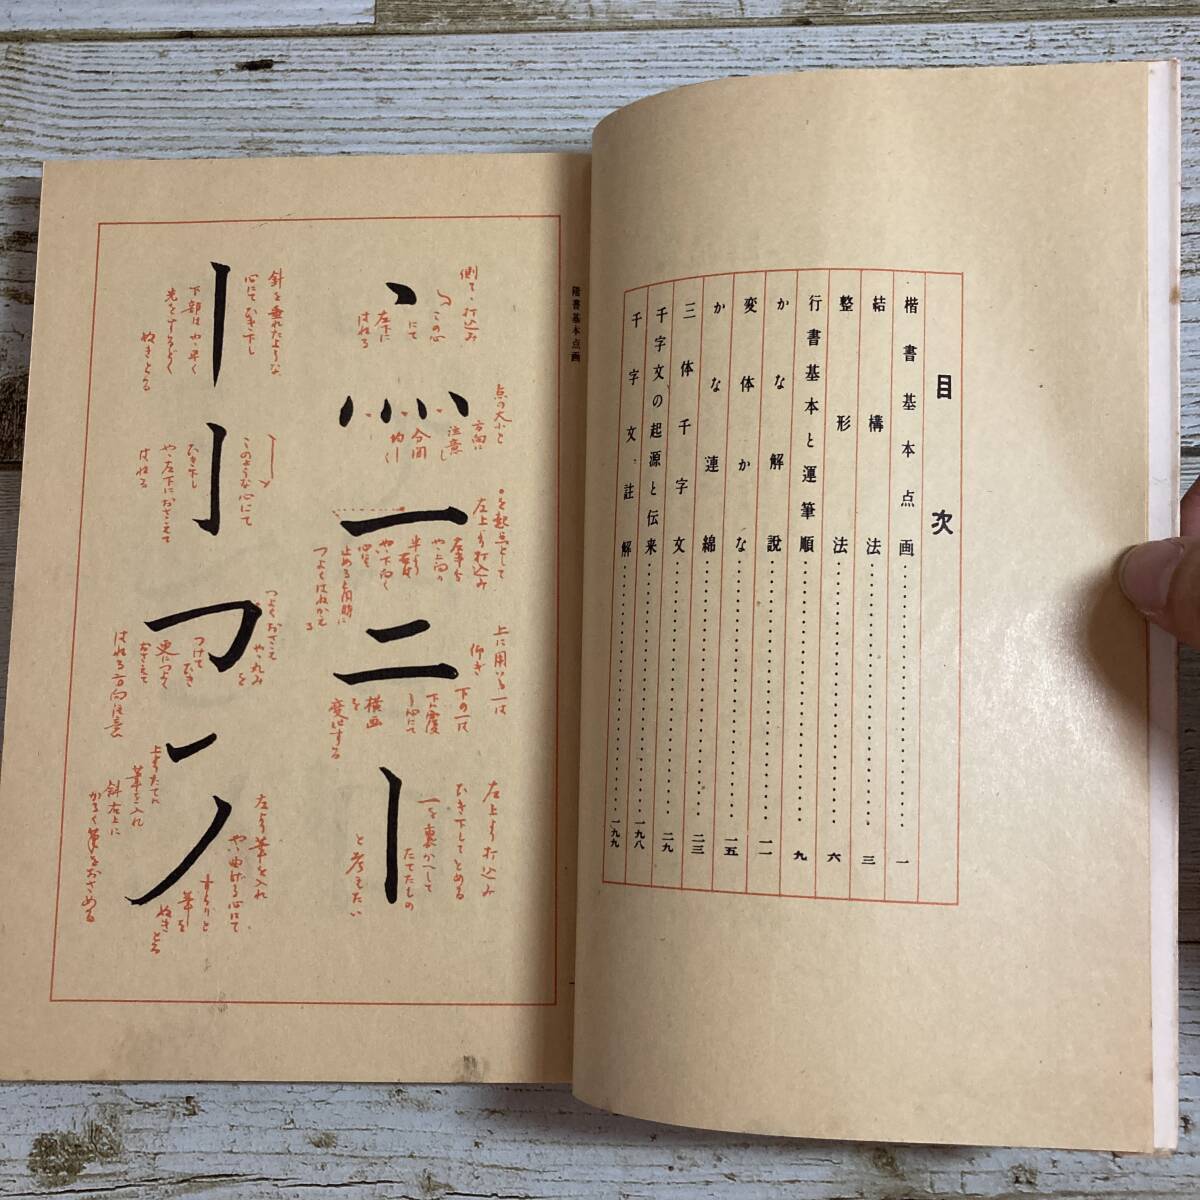 目次
楷書基本点画……一
結構法……三
整形法……六
行書基本と運筆順……九
かな解説……一一
変体かな……一五
かな連綿……二三
三体千字文……二九
千字文の起源と伝来……一九八
千字文註解……一九九
楷書基本点画
側て、打込み
この心
にて
左下に
はねる
点の大小と
方向に
注意し
合間
均しく
左上より打込み
上に用いる一は
仰ぎ
下の一は
下に
心にて
横画
を
変化する
左上より打込み
ひき下してとめる
一を裏がへして
たてたもの
と考えたい
針を垂れたような
心にてひき下し
下部はやゝ早く
光をするどく
ぬきとる
このような心にて
ひき下し
やゝ左下におさえて
はねる
つよくおさえ
やゝ丸みを
つけて
ひき
更につよく
おさえて
はねる方向注意
上よりたてに
筆を入れ
斜右上に
かるく筆をおさめる
左より筆を入れ
やゝ曲げる心にて
筆を
ぬきとる